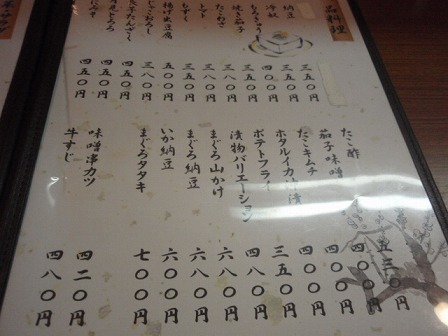 品料理
納豆 三五〇円
冷奴 三五〇円
もろきゅう 三五〇円
焼き茄子 三八〇円
たこわさ 三八〇円
トマト 三五〇円
もずく 三五〇円
揚げ出し豆腐 三八〇円
じゃこおろし 四五〇円
長芋たんざく 四五〇円
月見とろろ 四五〇円
たこ酢 五三〇円
茄子味噌 四〇〇円
たこキムチ 四〇〇円
ホタルイカ沖漬 四〇〇円
ポテトフライ 三五〇円
漬物バリエーション 四八〇円
まぐろ山かけ 六八〇円
まぐろ納豆 六八〇円
いか納豆 六〇〇円
まぐろタタキ 七〇〇円
味噌串カツ 四二〇円
牛すじ 四八〇円